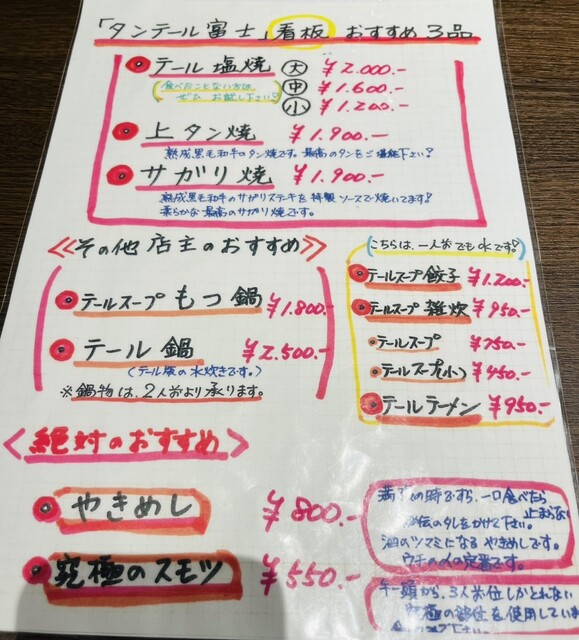 「タンテール富士」看板 おすすめ3品
テール塩焼 大 ¥2.000.-
食べたことない方は 中 ¥1.600.-
ぜひ お試し下さい♡ 小 ¥1.200.-
上タン焼 ¥1.900.-
熟成黒毛和牛のタン焼です。最高のタンをご堪能下さい!
サガリ焼 ¥1.900.-
熟成黒毛和牛のサガリステーキを特製ソースで焼いてます!
柔らかな最高のサガリ焼です。
≪その他店主のおすすめ≫
テールスープもつ鍋 ¥1.800.-
テール鍋 ¥2.500.-
(テール版の水炊きです。)
※鍋物は、2人前より承ります。
(こちらは、一人前でもOKです♡)
テールスープ餃子 ¥1.200.-
テールスープ雑炊 ¥950.-
テールスープ ¥750.-
テールスープ(小) ¥450.-
テールラーメン ¥950.-
<絶対のおすすめ>
やきめし ¥800.-
満腹の時ですら、一口食べたら
止まらない
秘伝のタレをかけて下さい。
酒のツマミになるやきめしです。
ウチの〆の定番です。
究極のスモツ ¥550.-
牛一頭から、3人前位しかとれない
究極の部位を使用してい
下さい!